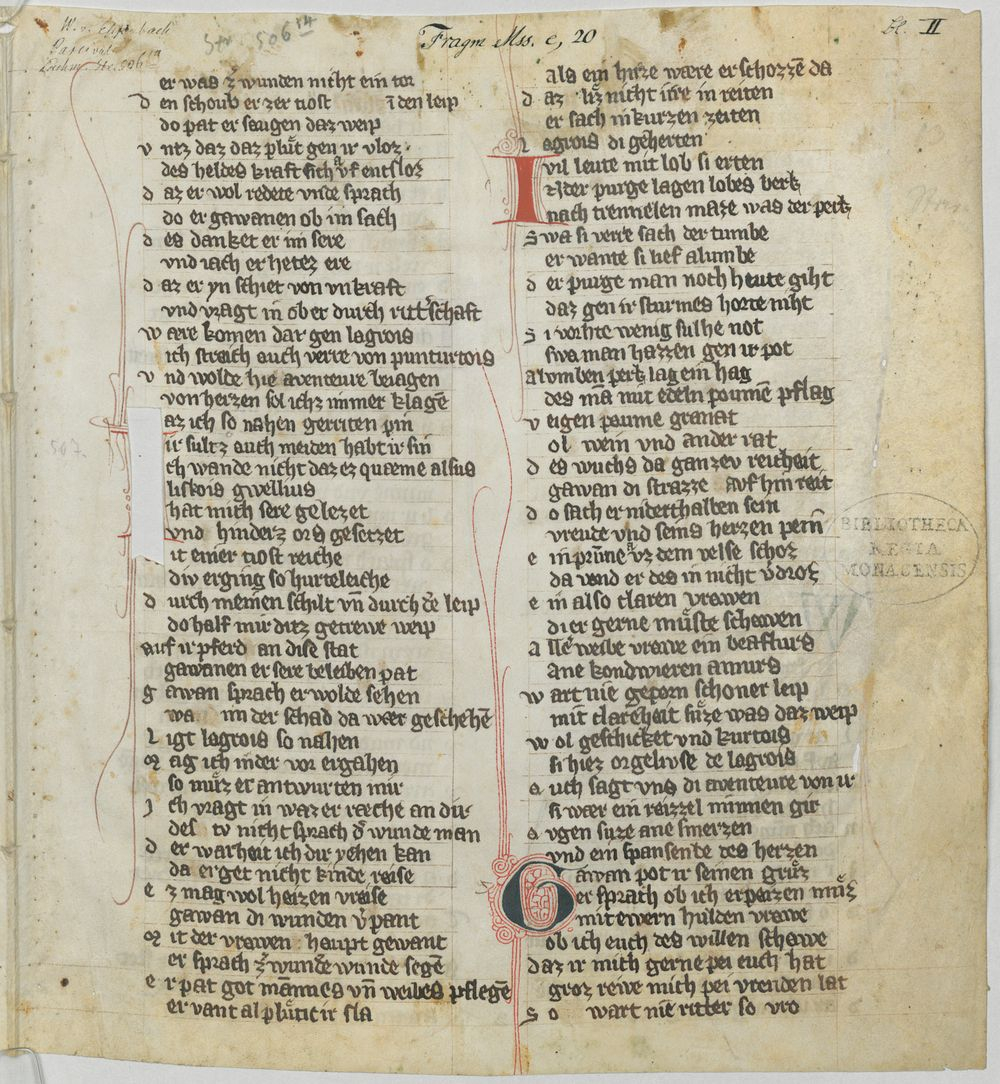 W. v. Eschenbach
Parcival
Lachm. Str. 506 14
Str. 506 14
Fragm Mss. c, 20
Bl. II
er was zͦ wunden nicht ein tor
den schoub er zer tiost in den leip
do pat er saugen daz weip
vntz daz daz pluͤt gen ir vloz
des heldes kraft sich vf entsloz
daz er wol redete vnde sprach
do er gawanen ob im sach
des danket er im sere
vnd iach er hetez ere
daz er yn schiet von vnkraft
vnd vragt in ob er durch ritt'schaft
wære komen dar gen lagrois
ich straich auch verre von punturtois
vnd wolde hie aventeure beiagen
von herzen sol ichz immer klagē
az ich so nahen gerriten pin
ir sultz auch meiden habt ir sin
ch wande nicht daz ez quæme alsus
liskois gwellius
hat mich sere gelezet
vnd hinderz ors gesetzet
it einer tiost reiche
div erging so hurteleiche
durch meinen schilt vn̄ durch dē leip
do half mir ditz getrewe weip
auf ir pferd an dise stat
gawanen er sere beleiben pat
gawan sprach er wolde sehen
wa im der schad da wær geschehē
ligt lagrois so nahen
mag ich in der vor ergahen
so muͤz er antwurten mir
Ich vragt in waz er ræche an dir
des tv nicht sprach d' wunde man
der warheit ich dir yehen kan
da erget nicht kinde reise
ez mag wol heizen vreise
gawan di wunden v'pant
mit der vrowen haupt gewant
er sprach zͦ wundē wunde segē
er pat got mannes vn̄ weibes pflegē
er vant al pluͤtic ir sla
als ein hirze wære erschozzē da
daz liz nicht irre in reiten
er sach in kurzen zeiten
lagrois di geherten
vil leute mit lob si erten
An der purge lagen lobes berk
nach trennelen maze was der perk
Swa si verre sach der tumbe
er wante si lief alumbe
der purge man noch heute giht
daz gen ir sturmes horte niht
Si vorhte wenig sulhe not
swa man hazzen gen ir pot
alvmben perk lag ein hag
des mā mit edeln poumē pflag
veigen poume granat
ol wein vnd ander rat
des wuchs da ganzev reicheit
gawan di strazze auf hin reit
do sach er niderthalben sein
vreude vnd seins herzen pein
ein prunne vz dem velse schoz
da vand er des in nicht v'droz
ein also claren vrowen
di er gerne muͤste schowen
alle weibe vrowe ein beaflurs
ane kondwieren amurs
wart nie geporn schoner leip
mit clarheit suͤze was daz weip
wol geschicket vnd kurtois
si hiez orgeluse de lagrois
auch sagt vns di aventeure von ir
si wær ein reizzel minnen gir
ovgen suͤze ane smerzen
vnd ein spansenbe des herzen
Gawan pot ir seinen gruͤz
er sprach ob ich erpeizen muͤz
mit ewern hulden vrowe
ob ich euch des willen schowe
daz ir mich gerne pei euch hat
groz reive mich pei vreuden lat
So wart nie ritter so vro
507.
BIBLIOTHECA
REGIA
MONACENSIS